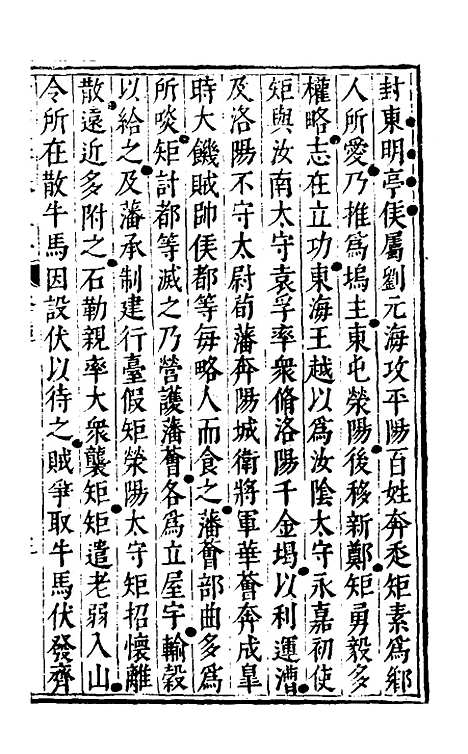 封東明亭侯屬劉元海攻平陽百姓奔走矩素爲鄉
人所愛乃推爲塢主東屯滎陽後移新鄭矩勇毅多
權略志在立功東海王越以爲汝陰太守永嘉初使
矩與汝南太守袁孚率衆脩洛陽千金堨以利運漕
及洛陽不守太尉荀藩奔陽城衛將軍華薈奔成臯
時大饑賊帥侯都等每略人而食之藩薈部曲多爲
所啖矩討都等滅之乃營護藩薈各爲立屋宇輸穀
以給之及藩承制建行臺假矩滎陽太守矩招懷離
散遠近多附之石勒親率大衆襲矩矩遣老弱入山
令所在散牛馬因設伏以待之賊爭取牛馬伏發齊